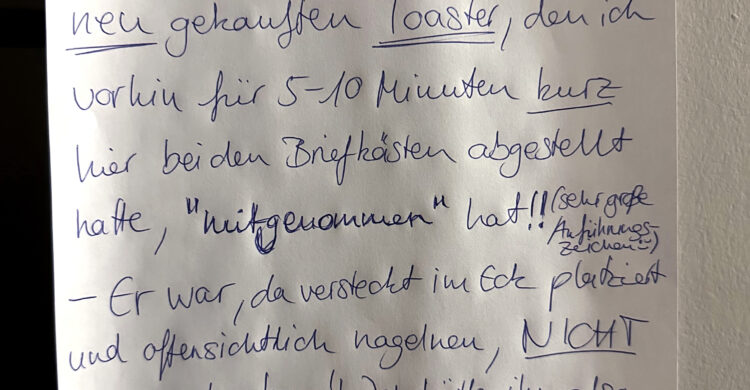 neu gekauften Toaster, den ich
vorhin für 5-10 Minuten kurz
hier bei den Briefkästen abgestellt
hatte, "mitgenommen" hat!! (sehr große
Anführungs-
zeichen!!)
– Er war, da versteckt im Eck platziert
und offensichtlich nagelneu, NICHT